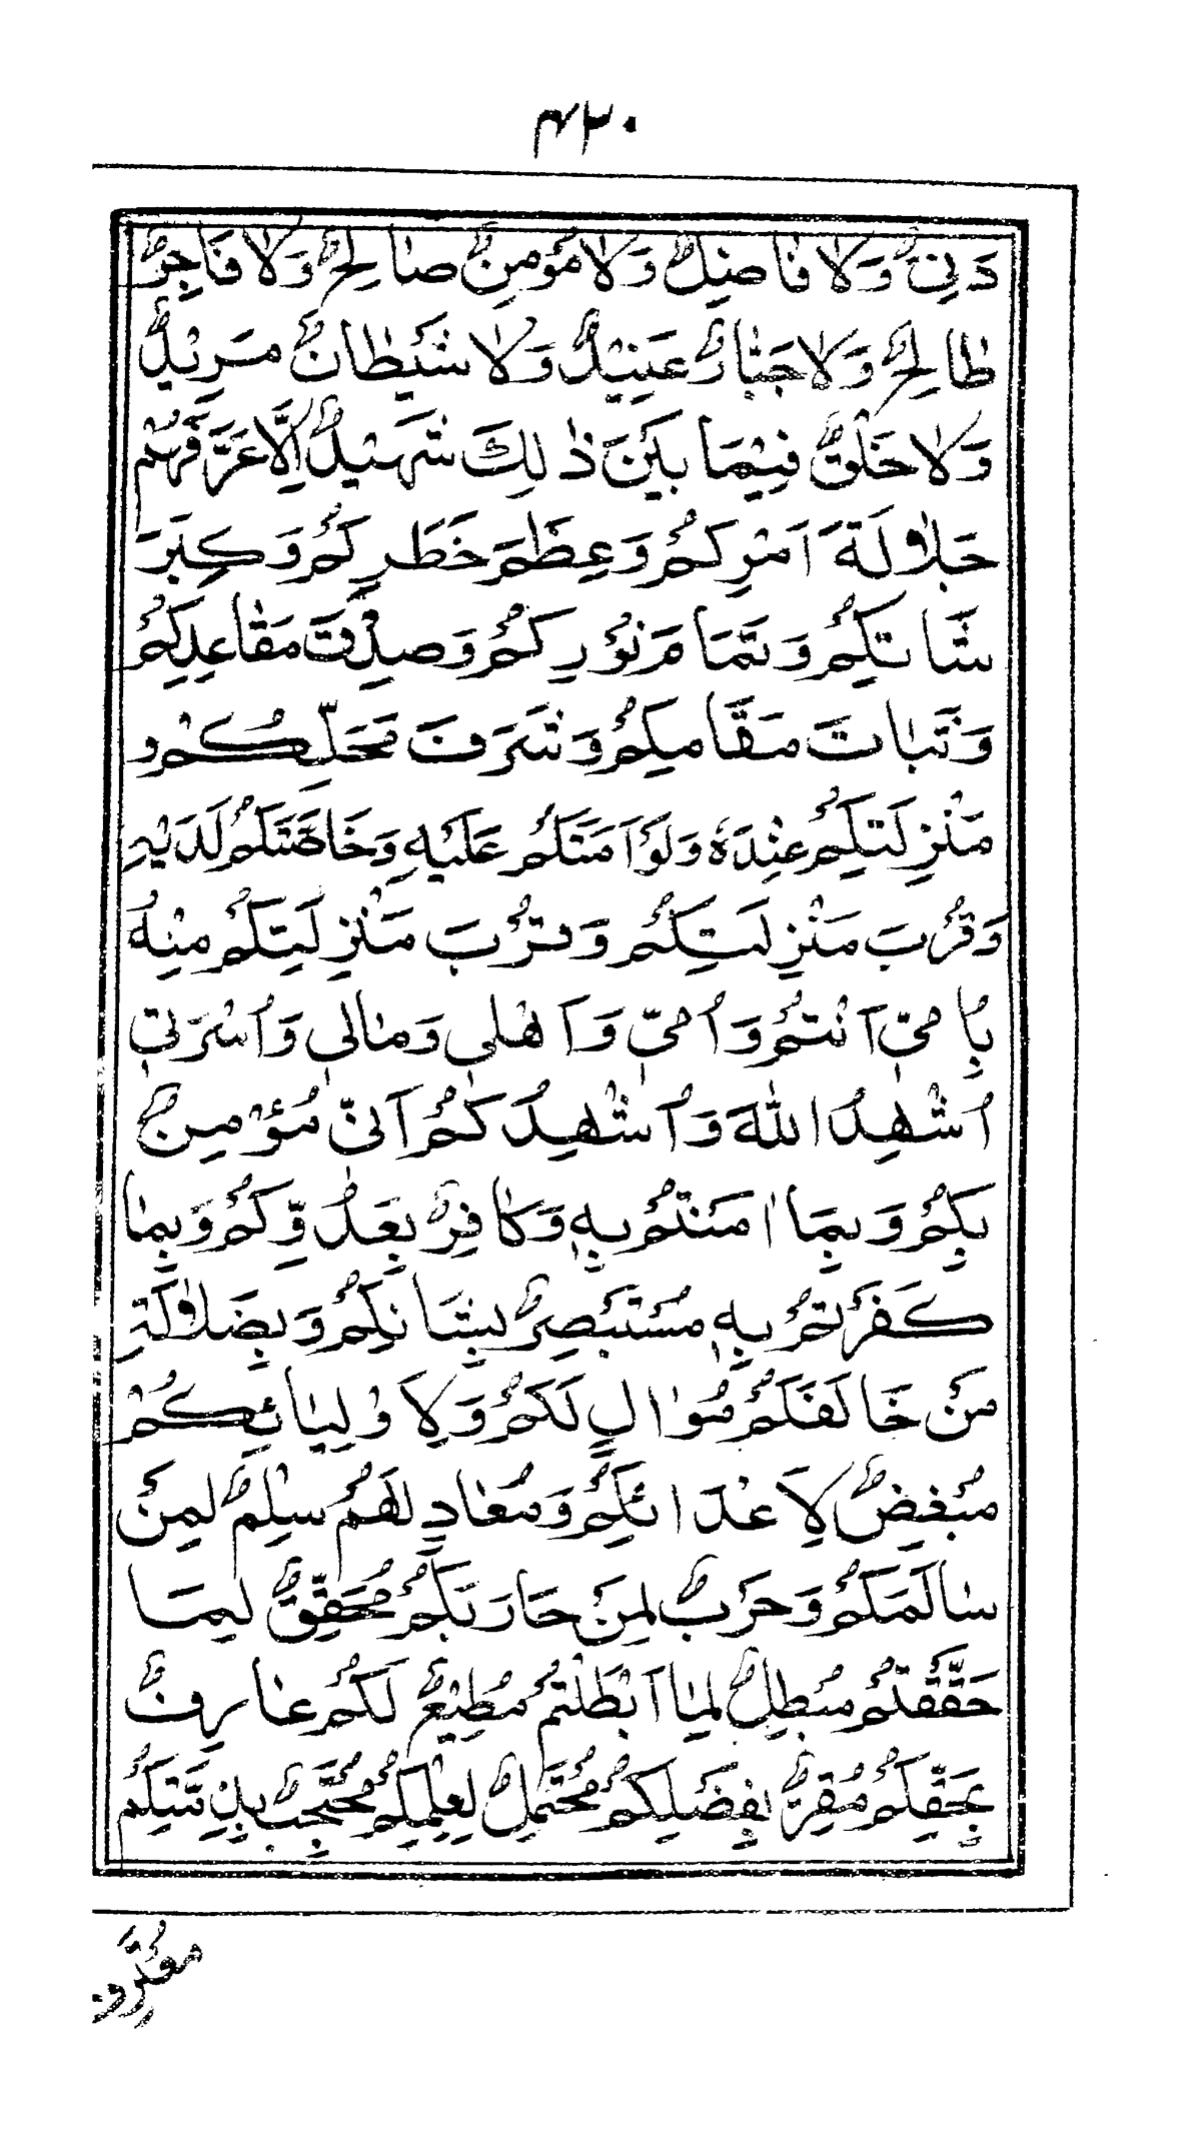 ۴۲۰
دَنِیٌّ وَلَا فَاضِلٌ وَلَا مُؤْمِنٌ صَالِحٌ وَلَا فَاجِرٌ
طَالِحٌ وَلَا جَبَّارٌ عَنِيدٌ وَلَا شَيْطَانٌ مَرِيدٌ
وَلَا خَلْقٌ فِيمَا بَيْنَ ذٰلِكَ شَهِيدٌ إِلَّا عَرَّفَهُمْ
جَلَالَةَ اَمْرِكُمْ وَعِظَمَ خَطَرِكُمْ وَكِبَرَ
شَاْنِكُمْ وَتَمَامَ نُورِكُمْ وَصِدْقَ مَقَاعِدِكُمْ
وَثَبَاتَ مَقَامِكُمْ وَشَرَفَ مَحَلِّكُمْ وَ
مَنْزِلَتِكُمْ عِنْدَهُ وَكَرَامَتَكُمْ عَلَيْهِ وَخَاصَّتَكُمْ لَدَيْهِ
وَقُرْبَ مَنْزِلَتِكُمْ وَقُرْبَ مَنْزِلَتِكُمْ مِنْهُ
بِاَبِیْ اَنْتُمْ وَاُمِّیْ وَاَهْلِیْ وَمَالِیْ وَاُسْرَتِیْ
اُشْهِدُ اللّٰهَ وَاُشْهِدُكُمْ اَنِّیْ مُؤْمِنٌ
بِكُمْ وَبِمَا اٰمَنْتُمْ بِهٖ وَكَافِرٌ بِعَدُوِّكُمْ وَبِمَا
كَفَرْتُمْ بِهٖ مُسْتَبْصِرٌ بِشَاْنِكُمْ وَبِضَلَالَةِ
مَنْ خَالَفَكُمْ مُوَالٍ لَكُمْ وَلِاَوْلِيَائِكُمْ
مُبْغِضٌ لِاَعْدَائِكُمْ وَمُعَادٍ لَهُمْ سِلْمٌ لِمَنْ
سَالَمَكُمْ وَحَرْبٌ لِمَنْ حَارَبَكُمْ مُحَقِّقٌ لِمَا
حَقَّقْتُمْ مُبْطِلٌ لِمَا اَبْطَلْتُمْ مُطِيْعٌ لَكُمْ عَارِفٌ
بِحَقِّكُمْ مُقِرٌّ بِفَضْلِكُمْ مُحْتَمِلٌ لِعِلْمِكُمْ مُحْتَجِبٌ بِذِمَّتِكُمْ
مُعْتَرِفٌ